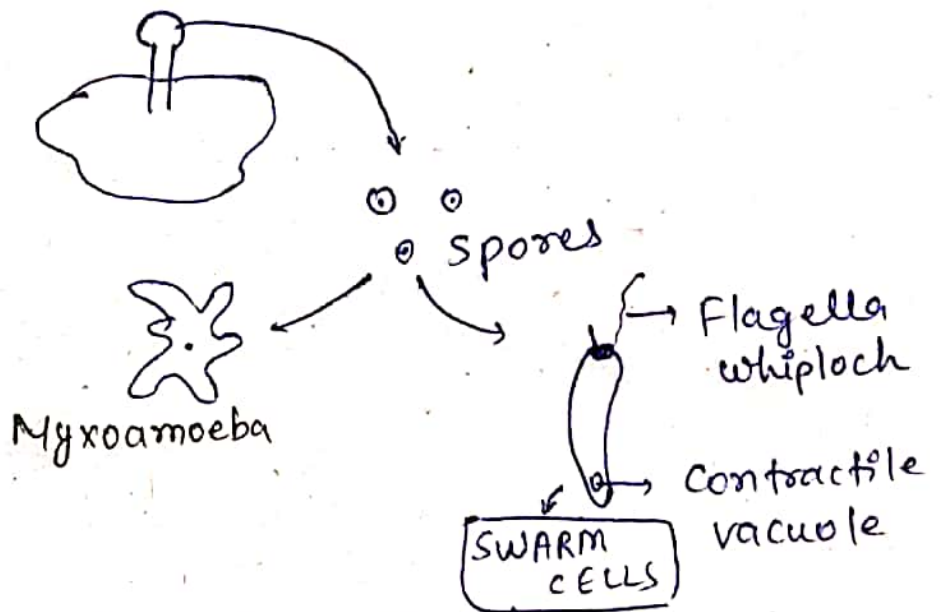 spores
Flagella
whiploch
Myxoamoeba
Contractile
vacuole
SWARM
CELLS